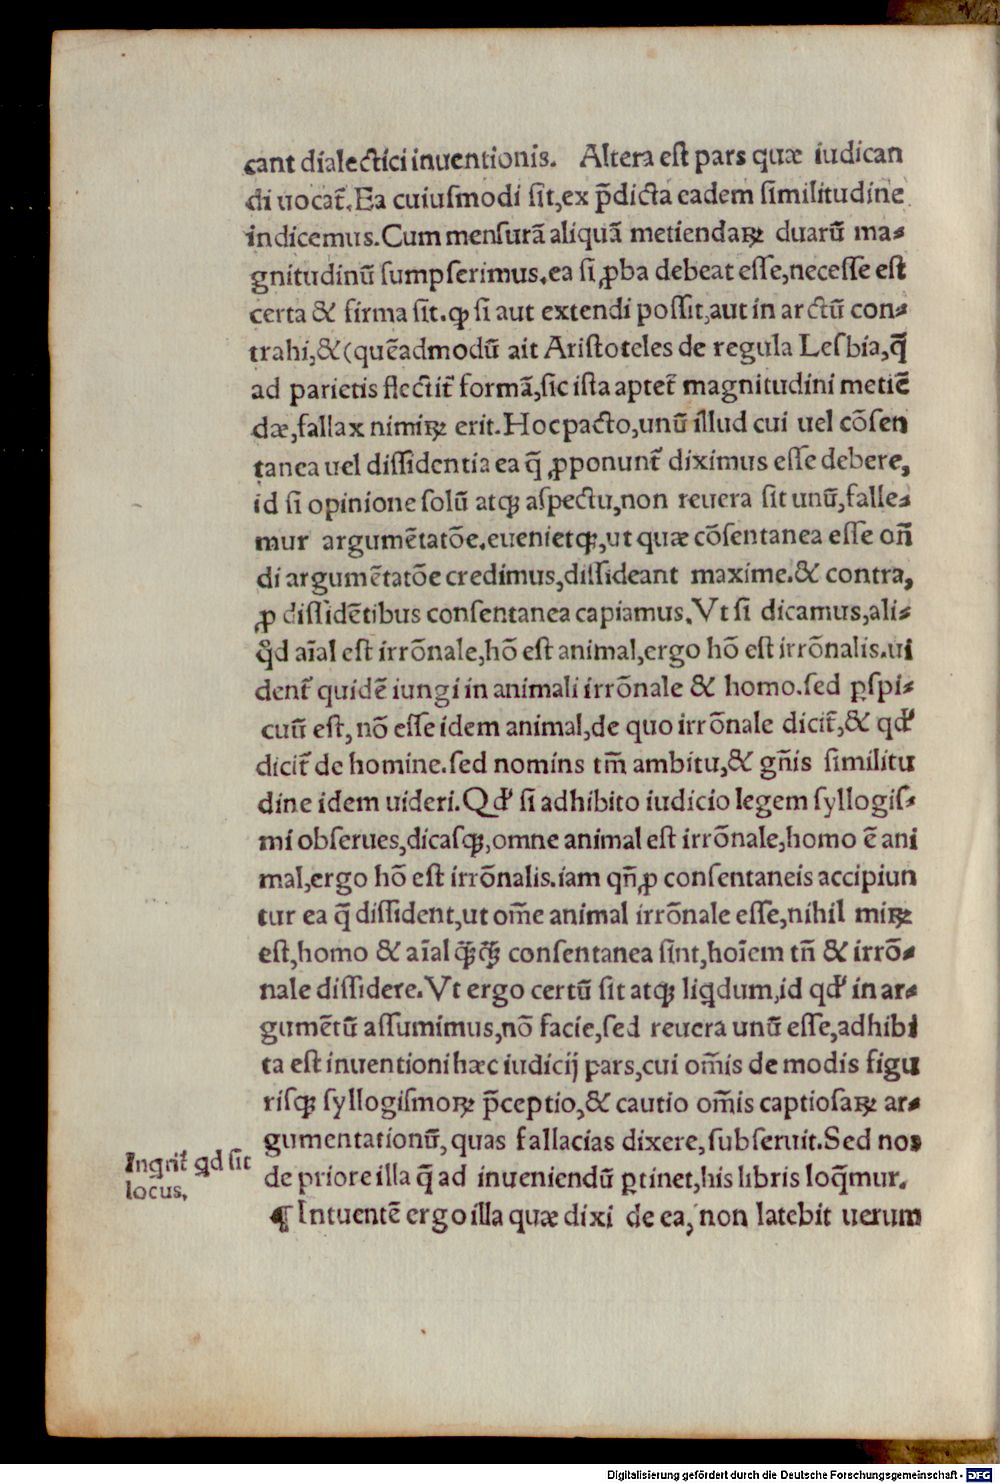 cant dialectici inuentionis. Altera est pars quæ iudican
di uocat̃. Ea cuiusmodi sit, ex p̃dicta eadem similitudine
indicemus. Cum mensurã aliquã metiendaꝝ duarũ ma-
gnitudinũ sumpserimus. ea si ꝓba debeat esse, necesse est
certa & firma sit. ꝙ si aut extendi possit, aut in arctũ con-
trahi, & (quẽadmodũ ait Aristoteles de regula Lesbia, q̃
ad parietis flectit̃ formã, sic ista aptet̃ magnitudini metiẽ
dæ, fallax nimiꝝ erit. Hoc pacto, unũ illud cui uel cõsen
tanea uel dissidentia ea q̃ ꝓponunt̃ diximus esse debere,
id si opinione solũ atqꝫ aspectu, non reuera sit unũ, falle-
mur argumẽtatõe. euenietqꝫ, ut quæ cõsentanea esse oñ
di argumẽtatõe credimus, dissideant maxime. & contra,
ꝓ dissidẽtibus consentanea capiamus. Vt si dicamus, ali-
qͥd aĩal est irrõnale, hõ est animal, ergo hõ est irrõnalis. ui
dent̃ quidẽ iungi in animali irrõnale & homo. sed ꝑspi-
cuũ est, nõ esse idem animal, de quo irrõnale dicit̃, & qđ
dicit̃ de homine. sed nomins tm̃ ambitu, & gñis similitu
dine idem uideri. Qđ si adhibito iudicio legem syllogis-
mi obserues, dicasqꝫ, omne animal est irrõnale, homo ẽ ani
mal, ergo hõ est irrõnalis. iam qñ ꝓ consentaneis accipiun
tur ea q̃ dissident, ut om̃e animal irrõnale esse, nihil miꝝ
est, homo & aĩal q̃qꝫ consentanea sint, hoĩem tñ & irrõ-
nale dissidere. Vt ergo certũ sit atqꝫ liqͥdum, id qđ in ar-
gumẽtũ assumimus, nõ facie, sed reuera unũ esse, adhibi
ta est inuentioni hæc iudicij pars, cui om̃is de modis figu
risqꝫ syllogismoꝝ p̃ceptio, & cautio om̃is captiosaꝝ ar-
gumentationũ, quas fallacias dixere, subseruit. Sed nos
de priore illa q̃ ad inueniendũ ꝑtinet, his libris loq̃mur.
¶ Intuentẽ ergo illa quæ dixi de ea, non latebit uerum
Inqrit̃ qͥd sit
locus,
Digitalisierung gefördert durch die Deutsche Forschungsgemeinschaft - DFG